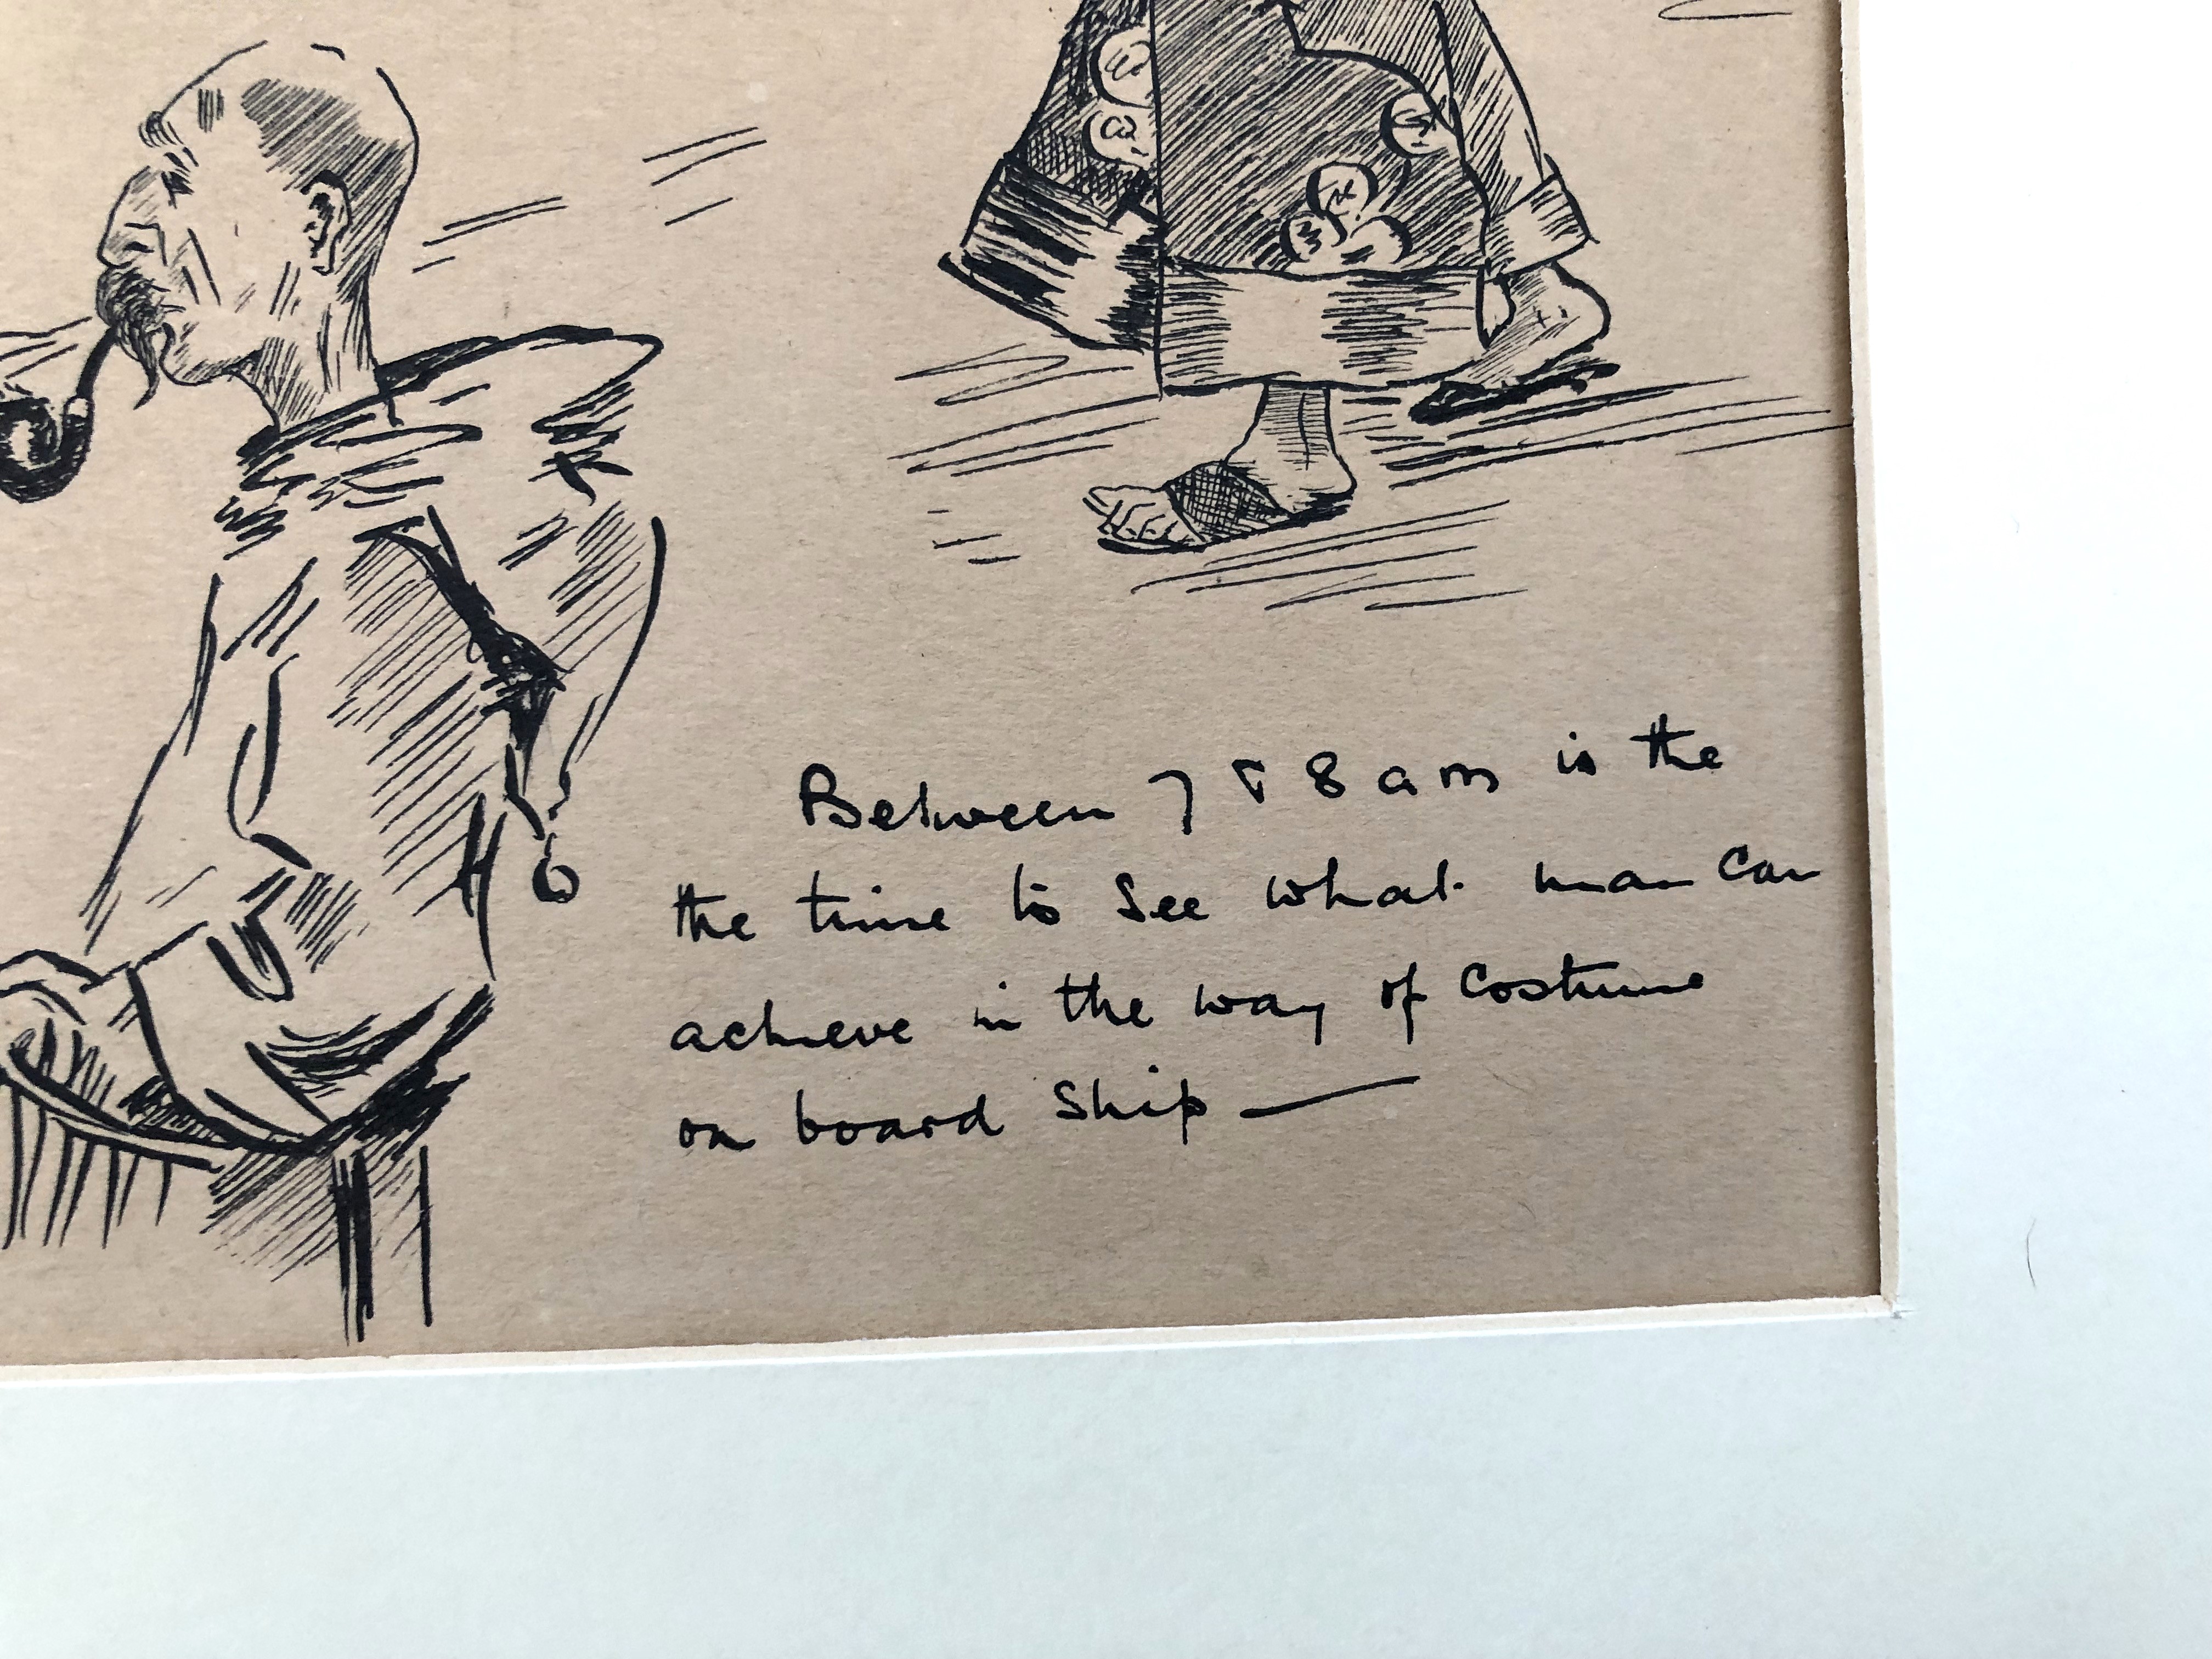 Between 7 & 8 am is the
the time to see what man can
achieve in the way of costume
on board ship —